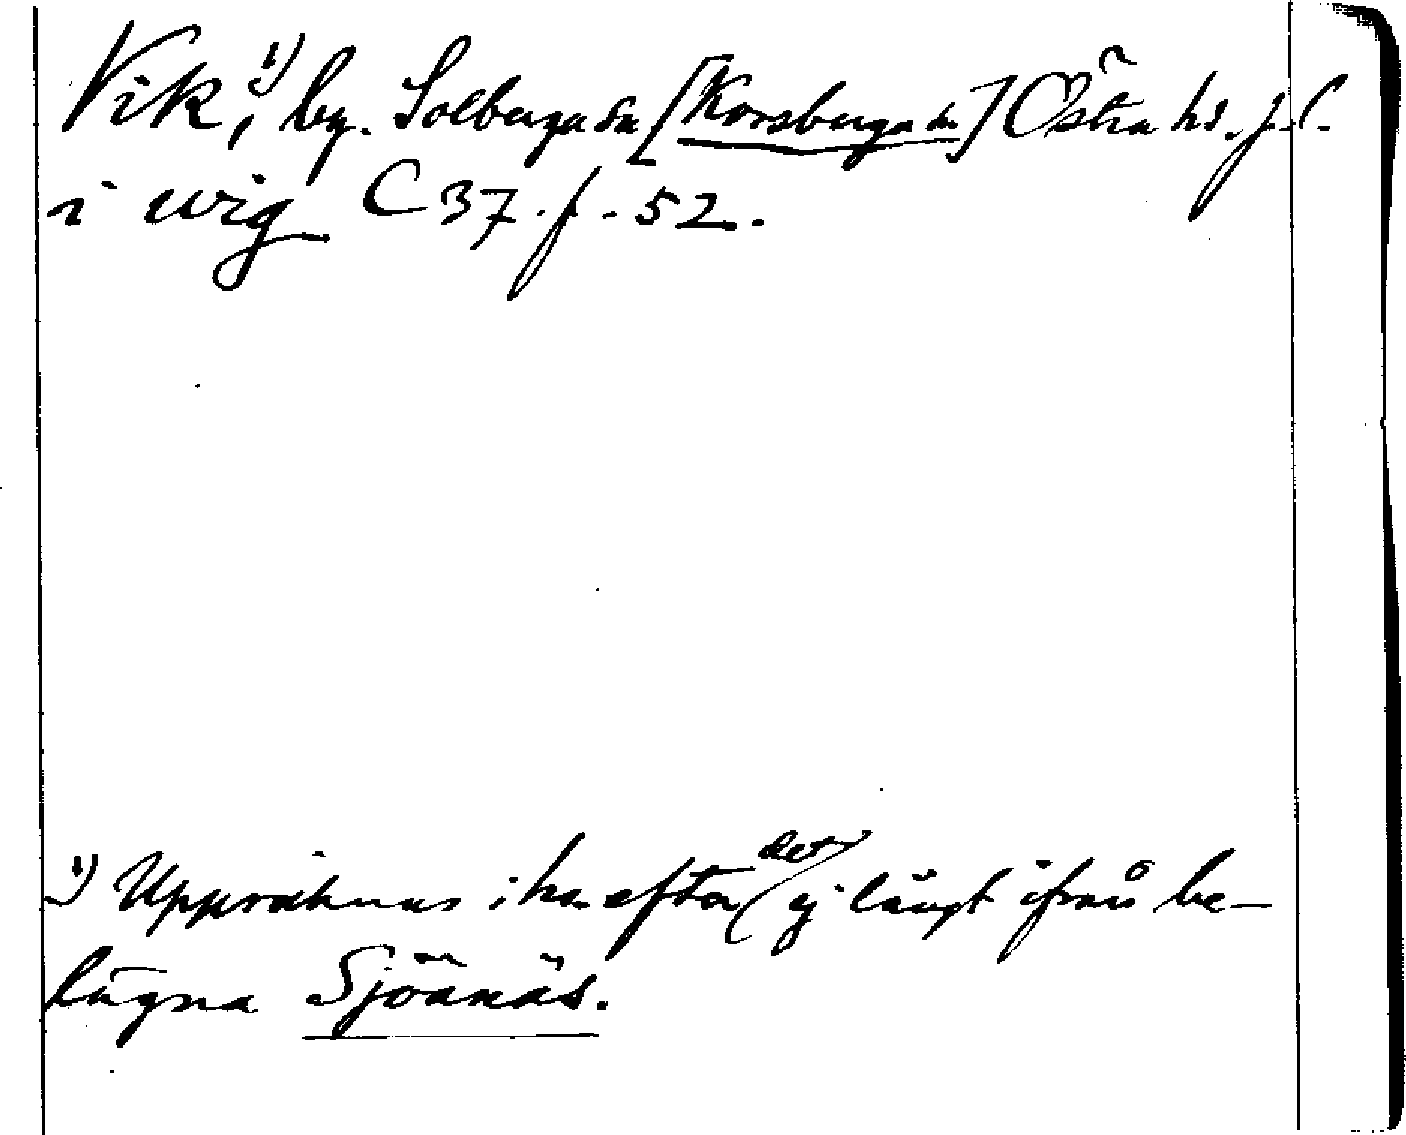 Vik,¹⁾ by. Solberga sn [Korsberga sn] Östra hd. J.l.
i wig C 37. f. 52.
¹⁾ Uppräknas i hs. efter det ej långt ifrån be-
lägna Sjöänäs.